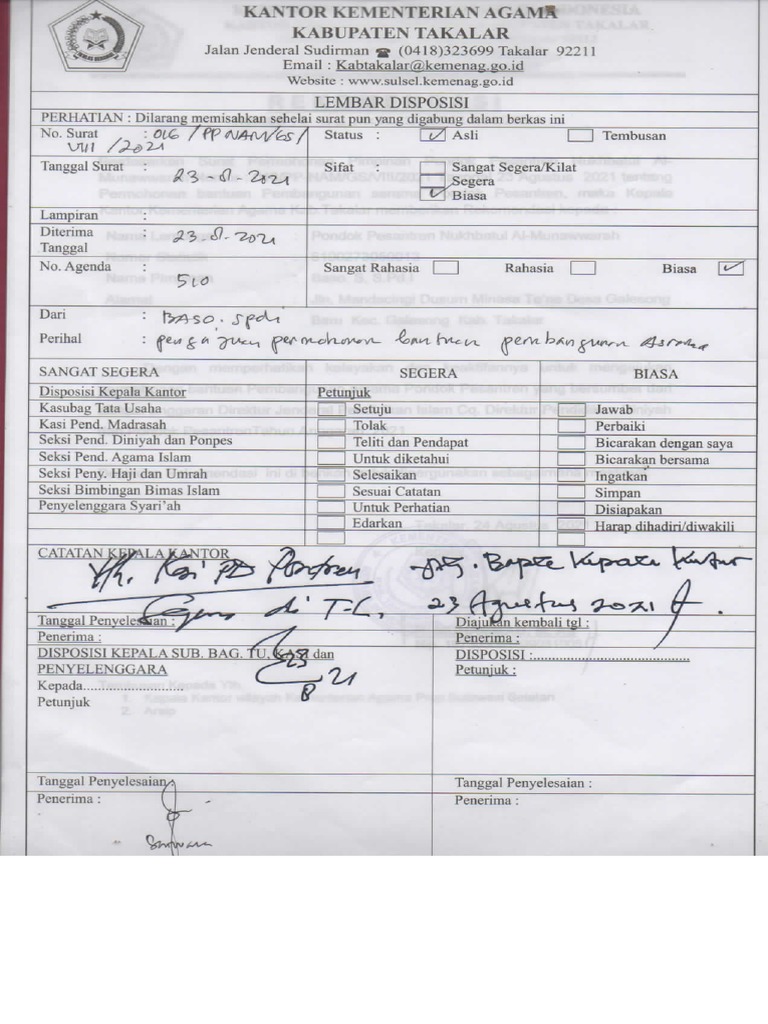 KANTOR KEMENTERIAN AGAMA
KABUPATEN TAKALAR
Jalan Jenderal Sudirman ☎ (0418)323699 Takalar 92211
Email : Kabtakalar@kemenag.go.id
Website : www.sulsel.kemenag.go.id
LEMBAR DISPOSISI
PERHATIAN : Dilarang memisahkan sehelai surat pun yang digabung dalam berkas ini
No. Surat : 016 /PP NAM/GS/
VIII /2021
Status : Asli Tembusan
Tanggal Surat : 23-8-2021
Sifat : Sangat Segera/Kilat
Segera
Biasa
Lampiran :
Diterima Tanggal : 23-8-2021
No. Agenda : 510
Sangat Rahasia Rahasia Biasa
Dari : BASO. Spdi
Perihal : pengajuan permohonan bantuan pembangunan Asrama
SANGAT SEGERA SEGERA BIASA
Disposisi Kepala Kantor Petunjuk
Kasubag Tata Usaha Setuju Jawab
Kasi Pend. Madrasah Tolak Perbaiki
Seksi Pend. Diniyah dan Ponpes Teliti dan Pendapat Bicarakan dengan saya
Seksi Pend. Agama Islam Untuk diketahui Bicarakan bersama
Seksi Peny. Haji dan Umrah Selesaikan Ingatkan
Seksi Bimbingan Bimas Islam Sesuai Catatan Simpan
Penyelenggara Syari'ah Untuk Perhatian Disiapakan
Edarkan Harap dihadiri/diwakili
CATATAN KEPALA KANTOR
Yth. Kasi PD Pontren
di T-L.
Kepala Kantor
23 Agustus 2021
Tanggal Penyelesaian : Diajukan kembali tgl :
Penerima : Penerima :
DISPOSISI KEPALA SUB. BAG. TU, KASI dan
PENYELENGGARA
DISPOSISI :
Kepada........................ Petunjuk :
Petunjuk
23/8 21
Tanggal Penyelesaian Tanggal Penyelesaian :
Penerima : Penerima :